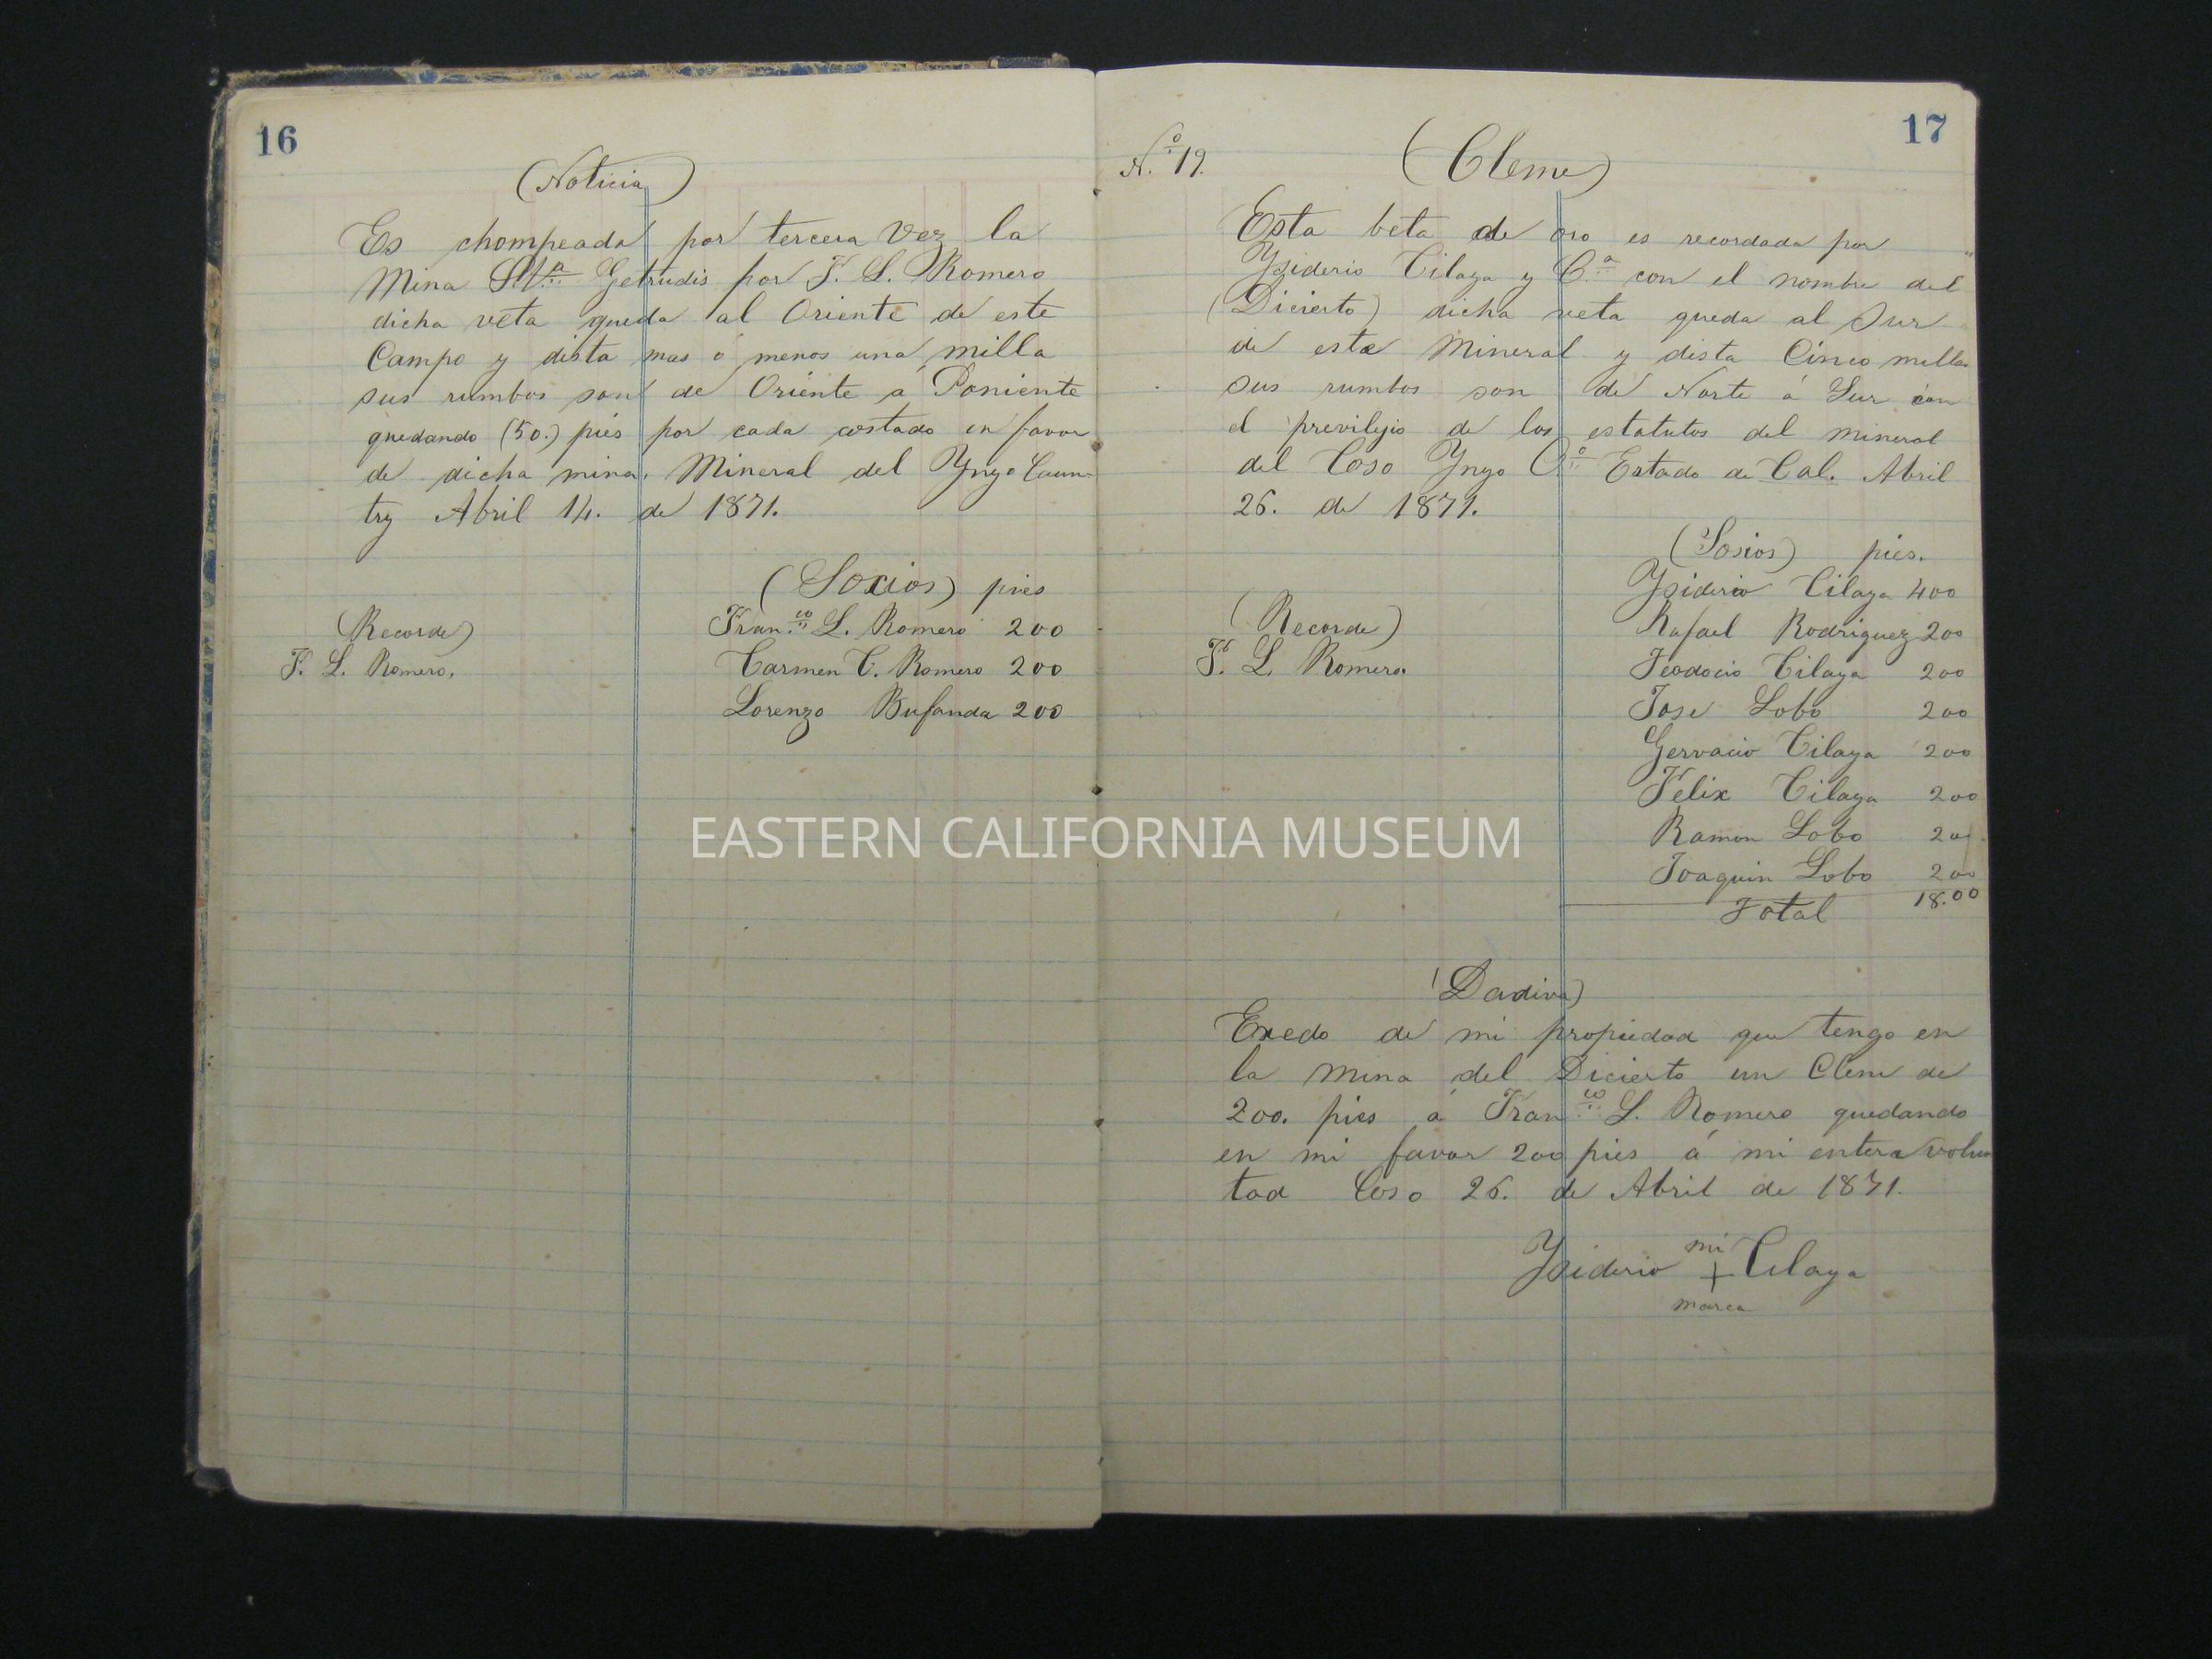 16
(Noticia)
Es chompeada por tercera Vez la
Mina Sta Getrudis por F. L. Romero
dicha veta queda al Oriente de este
Campo y dista mas o menos una milla
sus rumbos son de Oriente a Poniente
quedando (50.) pies por cada costado en favor
de dicha mina. Mineral del Yngo Coun-
try Abril 14. de 1871.
(Socios) pies
Fran.co L. Romero 200
Carmen C. Romero 200
Lorenzo Bufanda 200
(Recorde)
F. L. Romero.
17
N.o 19.
(Cleme)
Esta beta de oro es recordada por
Ysiderio Cilaya y C.a con el nombre del
(Dicierto) dicha veta queda al Sur
de este Mineral y dista Cinco millas
sus rumbos son de Norte á Sur con
el previlejio de los estatutos del mineral
del Coso Yngo C.o Estado de Cal. Abril
26. de 1871.
(Sosios) pies.
Ysiderio Cilaya 400
Rafael Rodriguez 200
Teodocio Cilaya 200
Jose Lobo 200
Gervacio Cilaya 200
Felix Cilaya 200
Ramon Lobo 200
Joaquin Lobo 200
Total 18.00
(Recorde)
F. L. Romero.
(Dadiva)
Exedo de mi propiedad que tengo en
la Mina del Dicierto un Cleme de
200. pies á Fran.co L. Romero quedando
en mi favor 200 pies á mi entera volun
tad Coso 26. de Abril de 1871.
Ysiderio mi + Cilaya
marca
EASTERN CALIFORNIA MUSEUM